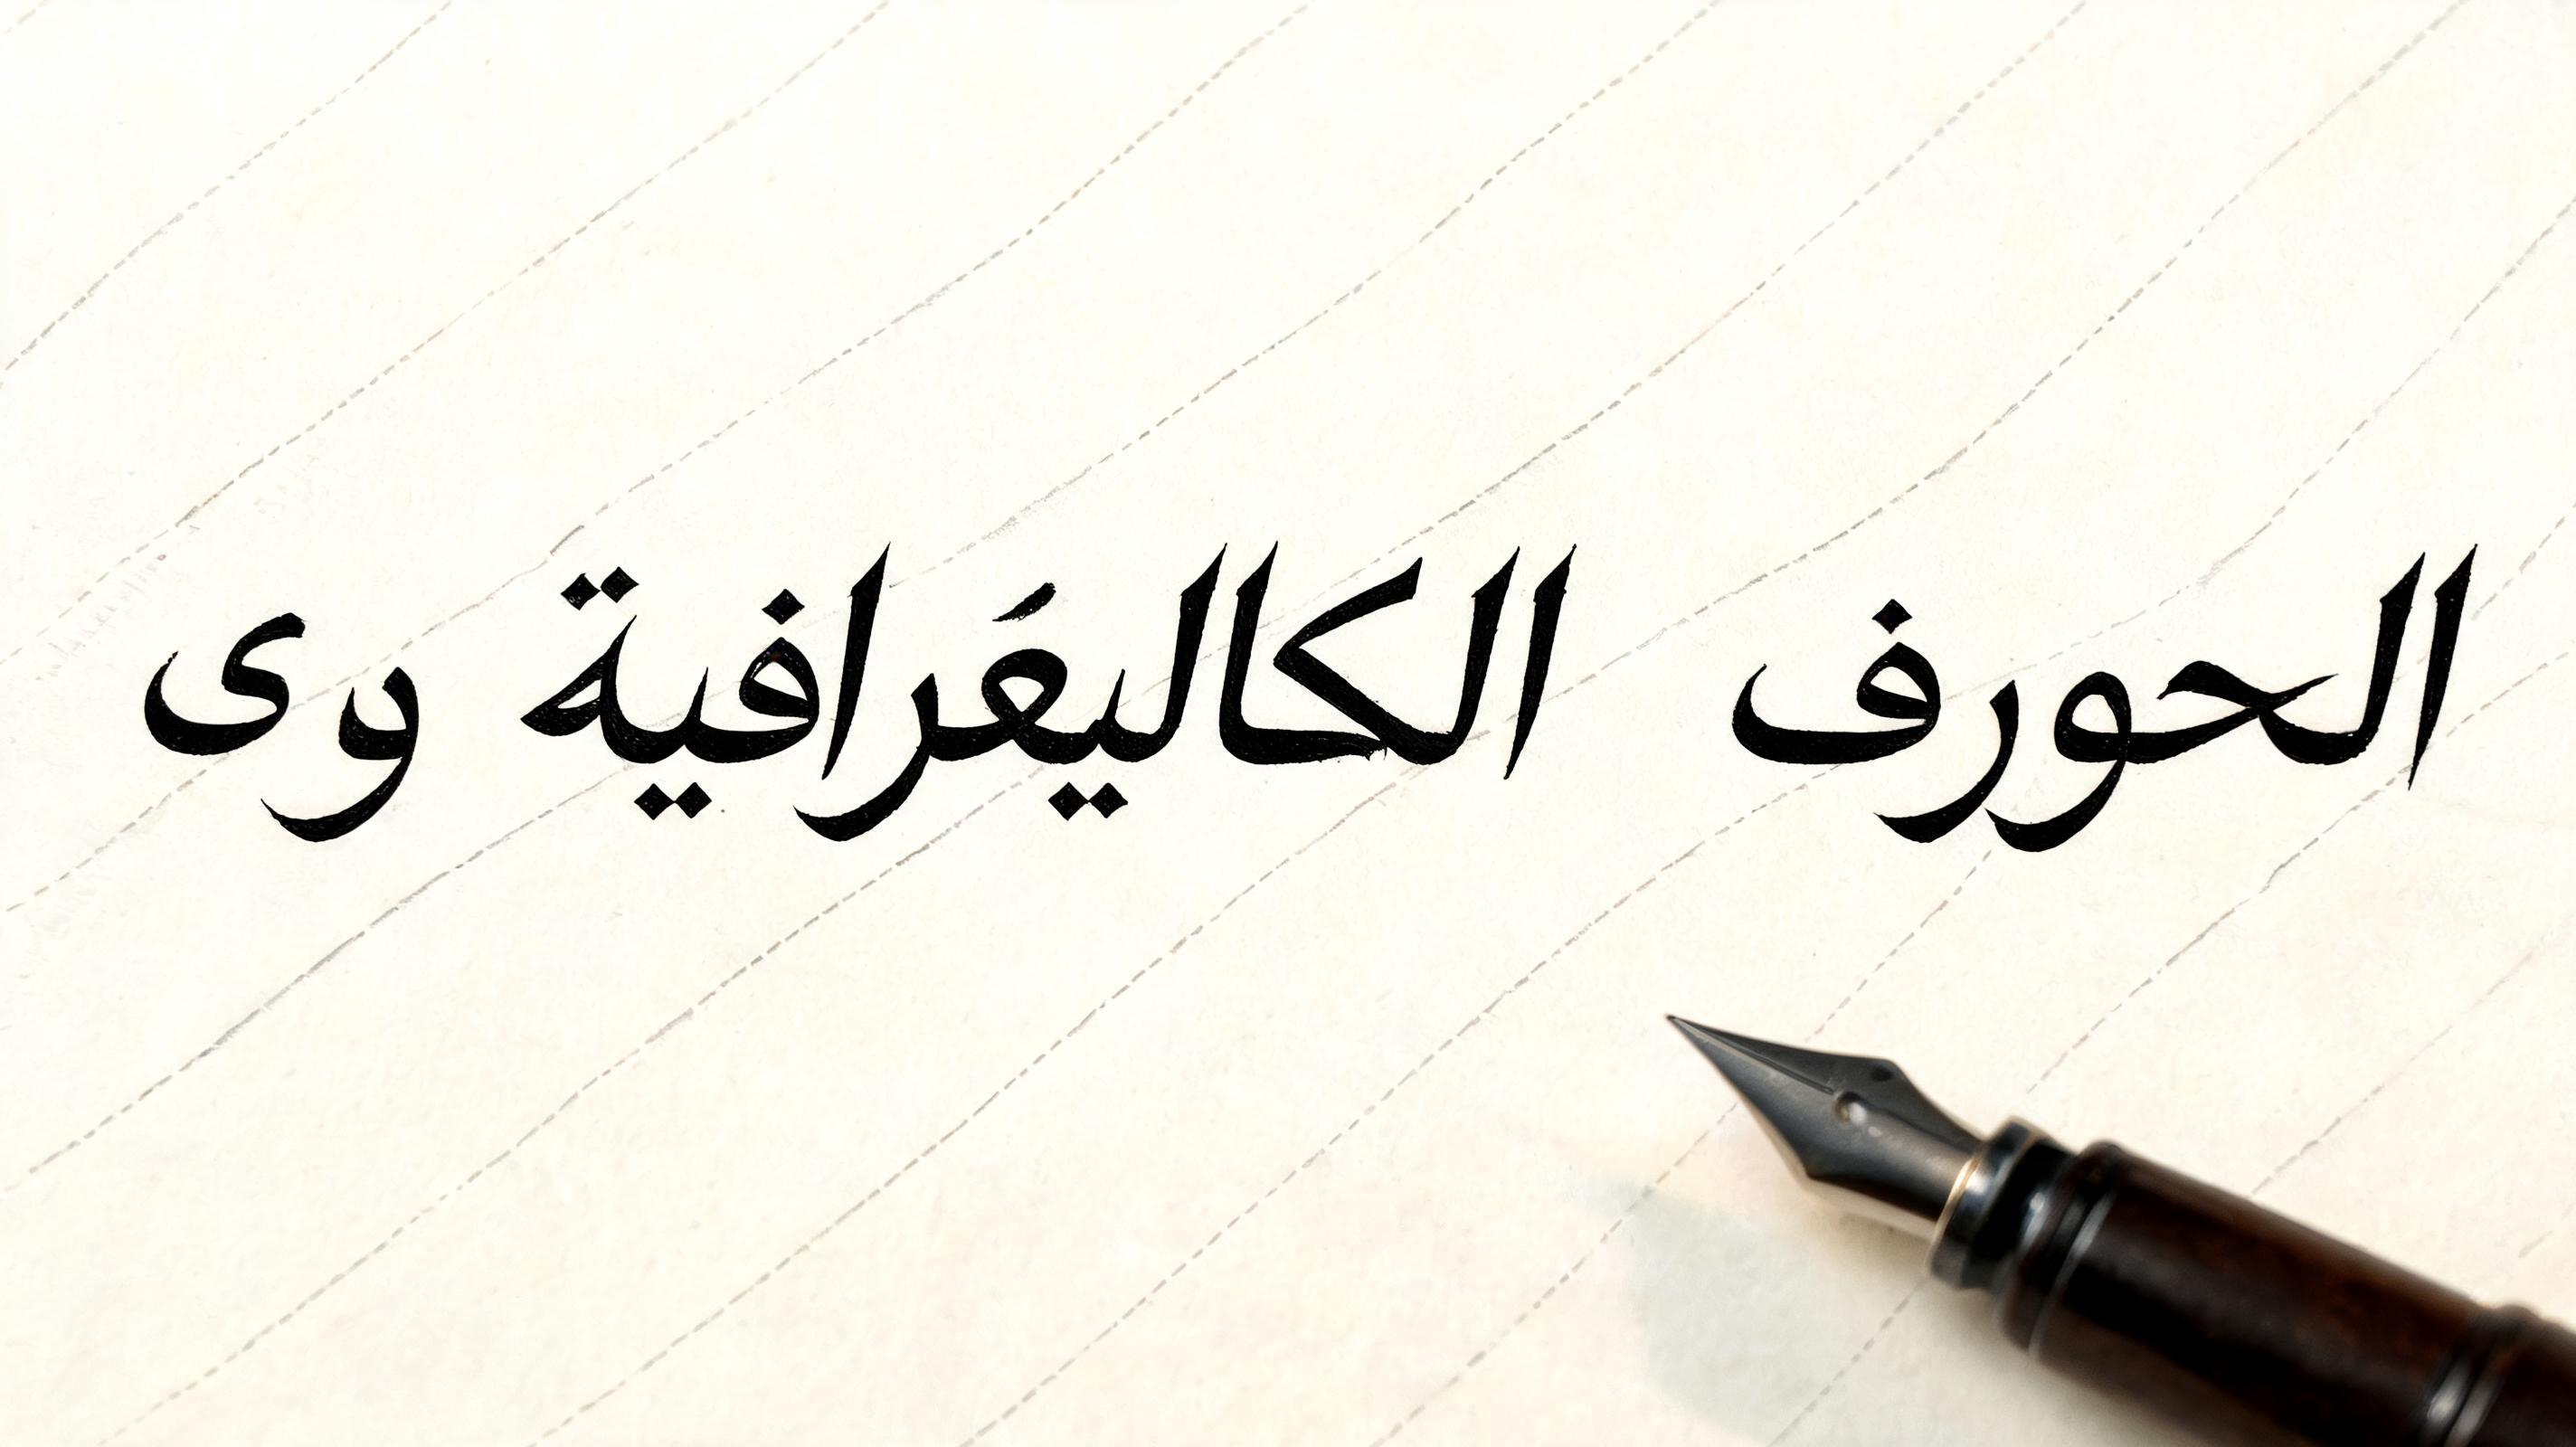 الحورف الكاليعَرافية وى